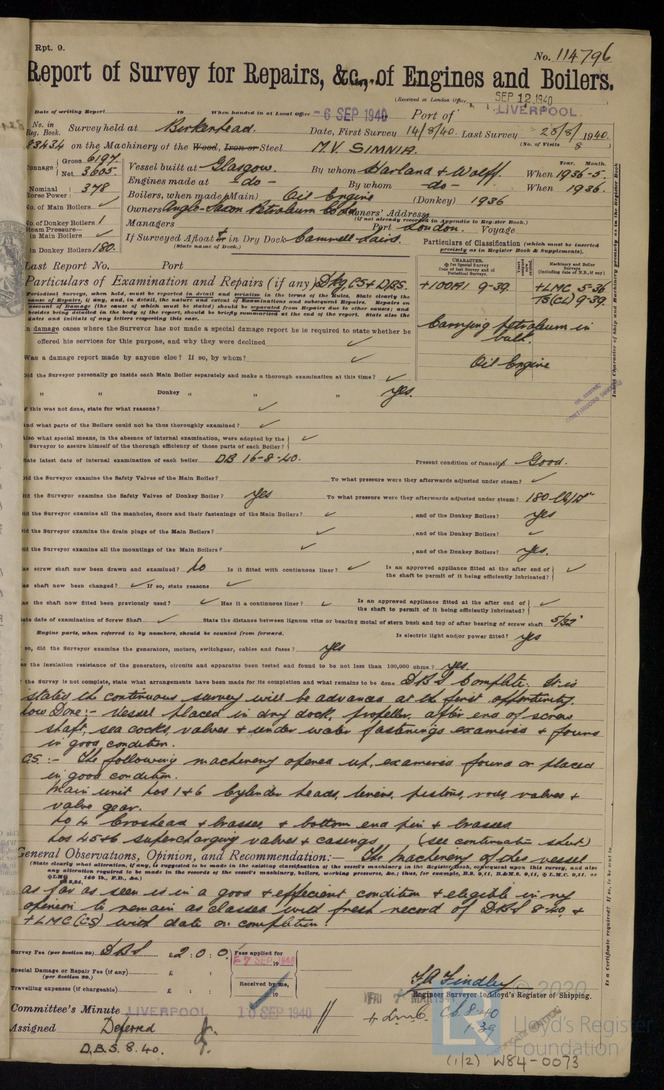 Rpt. 9.
No. 114796
Report of Survey for Repairs, &c., of Engines and Boilers.
(Received at London Office SEP 12 1940
Date of writing Report 19 When handed in at Local Office -6 SEP 1940 Port of LIVERPOOL
No. in Reg. Book. Survey held at Birkenhead. Date, First Survey 14/8/40. Last Survey 28/8/1940.
83434 on the Machinery of the Wood, Iron or Steel M.V. SIMNIA. (No. of Visits 8
Tonnage Gross 6197 Net 3605 Vessel built at Glasgow. By whom Harland & Wolff. Year. Month. When 1936-5.
Engines made at -do- By whom -do- When 1936.
Nominal Horse Power 378 Boilers, when made (Main) Oil Engine (Donkey) 1936
No. of Main Boilers ✓ Owners Anglo-Saxon Petroleum Co Ld Owners' Address
(if not already recorded in Appendix to Register Book.)
No. of Donkey Boilers 1 Managers Port London. Voyage
Steam Pressure— in Main Boilers ✓
in Donkey Boilers 180. If Surveyed Afloat or in Dry Dock Cammell-Lairds.
(State name of Dock.)
Particulars of Classification (which must be inserted precisely as in Register Book & Supplements).
Last Report No. Port
Particulars of Examination and Repairs (if any) Dkg, CS + DBS.
+100A1 9-39. +LMC 5-36
TS(CL) 9-39.
Carrying petroleum in bulk.
Oil Engine
In damage cases where the Surveyor has not made a special damage report he is required to state whether he
offered his services for this purpose, and why they were declined ✓
Was a damage report made by anyone else? If so, by whom? ✓
Did the Surveyor personally go inside each Main Boiler separately and make a thorough examination at this time? ✓
" " Donkey " " " yes.
If this was not done, state for what reasons? ✓
And what parts of the Boilers could not be thus thoroughly examined? ✓
Also what special means, in the absence of internal examination, were adopted by the
Surveyor to assure himself of the thorough efficiency of those parts of each Boiler? ✓
State latest date of internal examination of each boiler DB 16-8-40. Present condition of funnel Good.
Did the Surveyor examine the Safety Valves of the Main Boiler? To what pressure were they afterwards adjusted under steam? ✓
Did the Surveyor examine the Safety Valves of Donkey Boiler? yes To what pressure were they afterwards adjusted under steam? 180 lb/□"
Did the Surveyor examine all the manholes, doors and their fastenings of the Main Boilers? ✓, and of the Donkey Boilers? yes
Did the Surveyor examine the drain plugs of the Main Boilers? ✓, and of the Donkey Boilers? ✓
Did the Surveyor examine all the mountings of the Main Boilers? ✓, and of the Donkey Boilers? yes.
Has screw shaft now been drawn and examined? No Is it fitted with continuous liner? ✓ Is an approved appliance fitted at the after end of the shaft to permit of it being efficiently lubricated? ✓
Has shaft now been changed? ✓ If so, state reasons ✓
Has the shaft now fitted been previously used? ✓ Has it a continuous liner? ✓ Is an approved appliance fitted at the after end of the shaft to permit of it being efficiently lubricated? ✓
State date of examination of Screw Shaft ✓ State the distance between lignum vitæ or bearing metal of stern bush and top of after bearing of screw shaft 5/32"
Engine parts, when referred to by numbers, should be counted from forward. Is electric light and/or power fitted? yes
If so, did the Surveyor examine the generators, motors, switchgear, cables and fuses? yes
Has the insulation resistance of the generators, circuits and apparatus been tested and found to be not less than 100,000 ohms? yes.
If the Survey is not complete, state what arrangements have been made for its completion and what remains to be done D.B.S Complete. It is
stated the continuous survey will be advanced at the first opportunity.
Now Done:- Vessel placed in dry dock, propeller, after end of screw
shaft, sea cocks, valves & under water fastenings examined & found
in good condition.
CS:- The following machinery opened up, examined found or placed
in good condition.
Main unit Nos 1&6 Cylinder heads, liners, pistons, rods, valves &
valve gear.
No 4 Crosshead & brasses & bottom end pin & brasses.
Nos 4 5 & 6 supercharging valves & casings. (see continuation sheet)
General Observations, Opinion, and Recommendation:— The machinery of this vessel
as far as seen is in a good & efficient condition & eligible in my
opinion to remain as classed with fresh record of D.B.S 8.40. &
+LMC (CS) with date on completion.
Survey Fee (per Section 29) DBS £2 : 0 : 0 Fees applied for
-7 SEP 1940
Special Damage or Repair Fee (if any) £ : :
(per Section 29.)
Received by me,
Travelling expenses (if chargeable) £ : :
Engineer Surveyor to Lloyd's Register of Shipping.
Committee's Minute LIVERPOOL 10 SEP 1940
Assigned Deferred
D.B.S. 8.40.
© 2020
Lloyd's Register
Foundation
(1/2) W84-0073